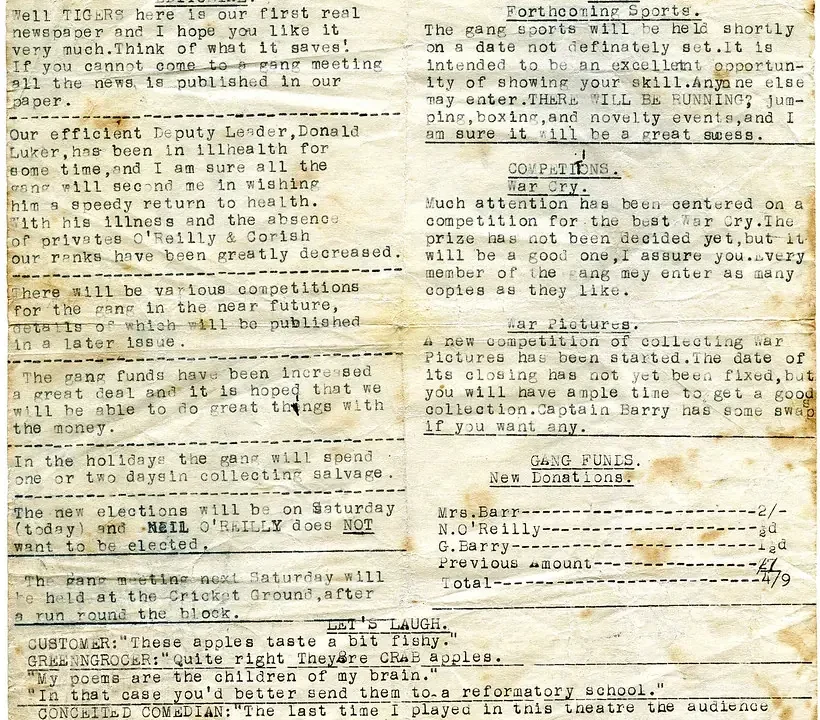 Well TIGERS here is our first real
newspaper and I hope you like it
very much.Think of what it saves!
If you cannot come to a gang meeting
all the news is published in our
paper.
Our efficient Deputy Leader,Donald
Luker,has been in illhealth for
some time,and I am sure all the
gang will second me in wishing
him a speedy return to health.
With his illness and the absence
of privates O'Reilly & Corish
our ranks have been greatly decreased.
There will be various competitions
for the gang in the near future,
details of which will be published
in a later issue.
The gang funds have been increased
a great deal and it is hoped that we
will be able to do great things with
the money.
In the holidays the gang will spend
one or two daysin collecting salvage.
The new elections will be on Saturday
(today) and NEIL O'REILLY does NOT
want to be elected.
The gang meeting next Saturday will
be held at the Cricket Ground,after
a run round the block.
Forthcoming Sports.
The gang sports will be held shortly
on a date not definately set.It is
intended to be an excellent opportun-
ity of showing your skill.Anyone else
may enter.THERE WILL BE RUNNING, jum-
ping,boxing,and novelty events,and I
am sure it will be a great sucess.
COMPETIONS.
War Cry.
Much attention has been centered on a
competition for the best War Cry.The
prize has not been decided yet,but it
will be a good one,I assure you.Every
member of the gang mey enter as many
copies as they like.
War Pictures.
A new competition of collecting War
Pictures has been started.The date of
its closing has not yet been fixed,but
you will have ample time to get a good
collection.Captain Barry has some swaps
if you want any.
GANG FUNDS.
New Donations.
Mrs.Barr---------------------2/-
N.O'Reilly-------------------½d
G.Barry----------------------1½d
Previous Amount--------------
Total------------------------4/9
LET'S LAUGH.
CUSTOMER:"These apples taste a bit fishy."
GREENNGROCER:"Quite right They're CRAB apples.
"My poems are the children of my brain."
"In that case you'd better send them to a reformatory school."
CONCEITED COMEDIAN:"The last time I played in this theatre the audience